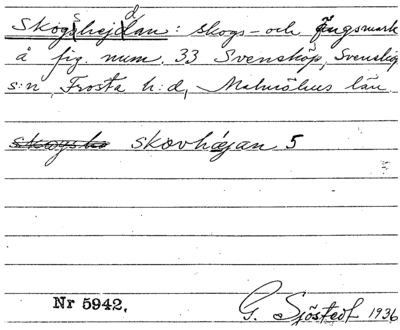 Skogshejdan: skogs- och ängsmark
å fig. num. 33 Svensköp, Svensköp
s:n, Frosta h:d, Malmöhus län.
skovhejan 5
Nr 5942.
G. Sjöstedt 1936